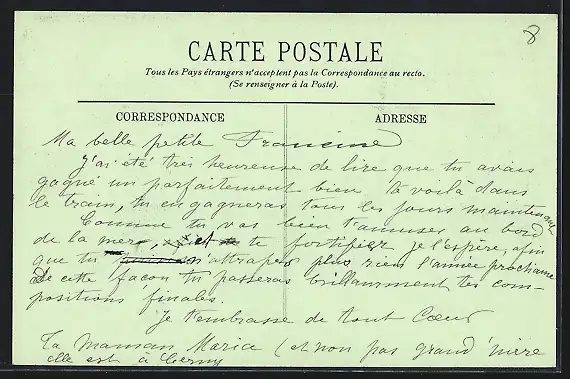 8
CARTE POSTALE
Tous les Pays étrangers n'acceptent pas la Correspondance au recto.
(Se renseigner à la Poste).
CORRESPONDANCE
ADRESSE
Ma belle petite Francine
J'ai été très heureuse de lire que tu avais
gagné un parfaitement bien te voilà dans
le train, tu en gagneras tous les jours maintenant
Comme tu vas bien t'amuser au bord
de la mer, et te fortifier je l'espère, afin
que tu n'attrapes plus rien l'année prochaine
De cette façon tu passeras brillamment tes com-
positions finales.
Je t'embrasse de tout Cœur
Ta Maman Maria (et non pas grand'mère
elle est à Cerny